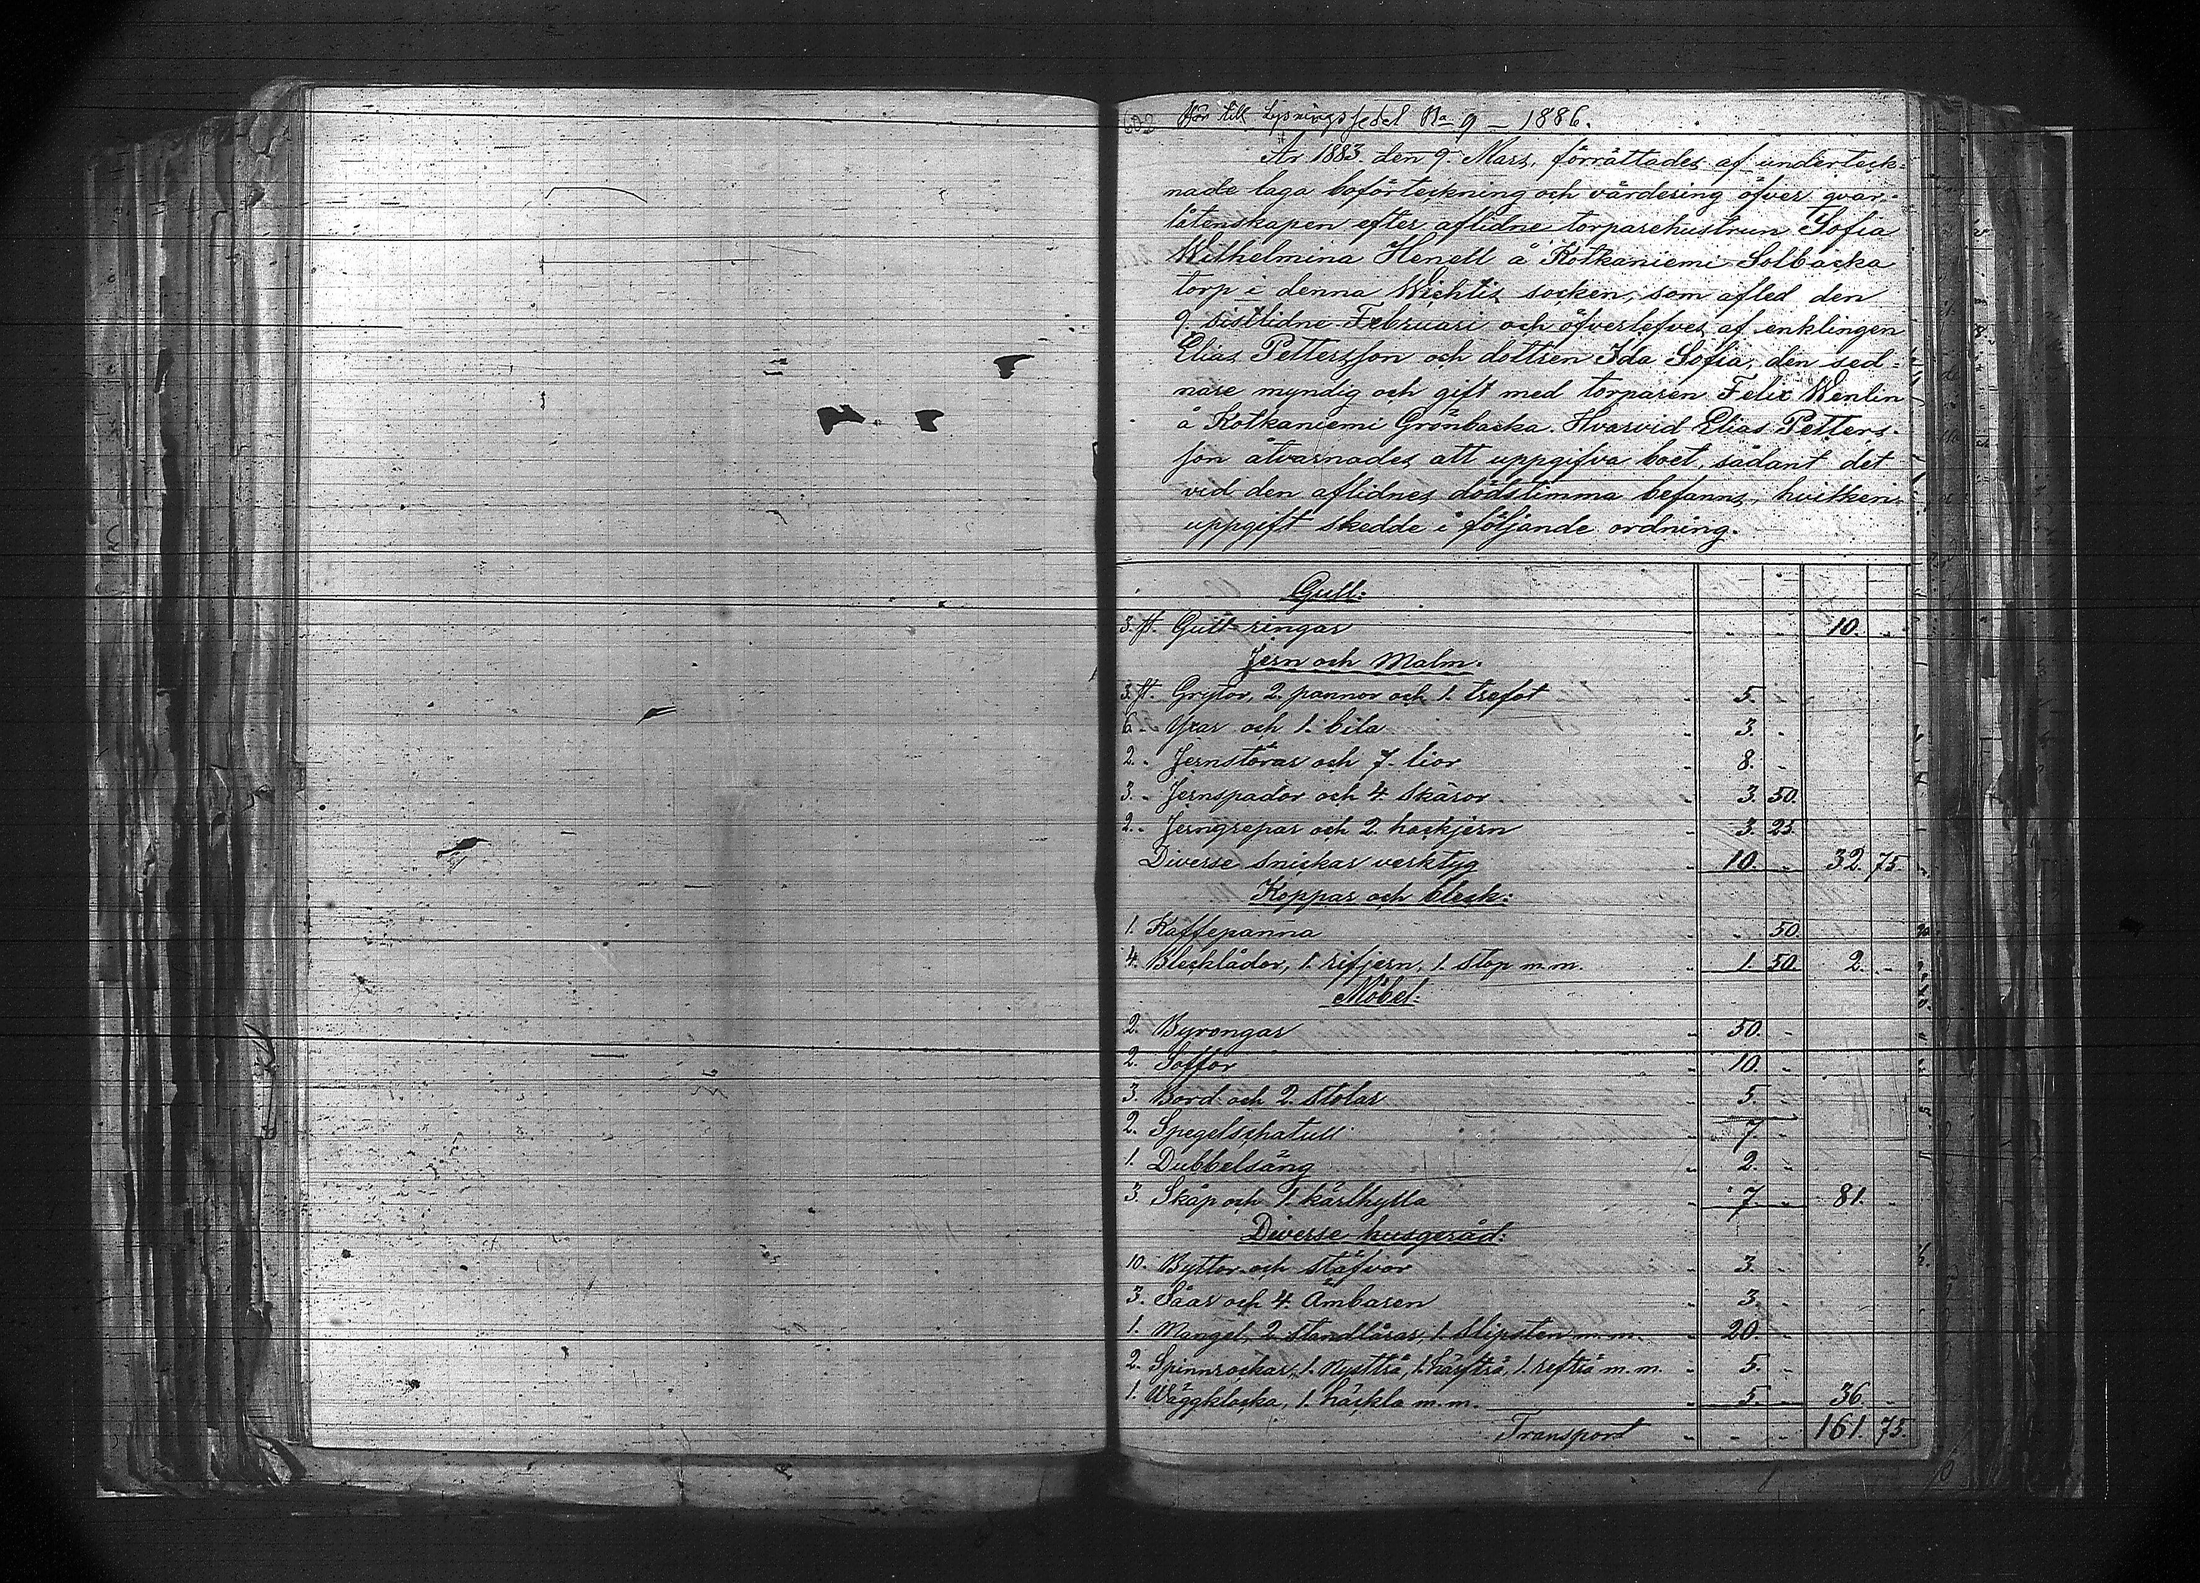 602 Hör till Lysningssedel No 9 – 1886.
År 1883. den 9. Mars, förrättades af underteck-
nade laga boförteckning och värdering öfver qvar-
låtenskapen efter aflidne torparehustrun Sofia
Wilhelmina Henell å Kotkaniemi Solbacka
torp i denna Wichtis socken, som afled den
9. sistlidne Februari och öfverlefves af enklingen
Elias Pettersson och dottren Ida Sofia, den sed-
nare myndig och gift med torparen Felix Wenlin
å Kotkaniemi Grönbacka. Hvarvid Elias Petters-
son åtvarnades att uppgifva boet, sådant det
vid den aflidnes dödstimma befanns, hvilken
uppgift skedde i följande ordning.
Gull:
3. st. Gull ringar " " " 10. "
Jern och Malm:
3. st. Grytor, 2. pannor och 1. trefot " 5. "
6. " Yxar och 1. bila " 3. "
2. " Jernstörar och 7. liar " 8. "
3. " Jernspador och 4. Skäror " 3. 50.
2. " Jerngrepar och 2. hackjern " 3. 25.
Diverse snickar verktyg " 10. " 32. 75.
Koppar och bleck:
1. Kaffepanna " " 50.
4. Blecklådor, 1. rifjern, 1. stop m.m. " 1. 50. 2. "
Möbel:
2. Byrongar " 50. "
2. Soffor " 10. "
3. Bord och 2. stolar " 5. "
2. Spegelschatull " 7. "
1. Dubbelsäng " 2. "
3. Skåp och 1. kärlhylla " 7. " 81. "
Diverse husgeråd:
10. Byttor och stäfvor " 3. "
3. Såar och 4. Ämbaren " 3. "
1. Mangel, 2. standlårar, 1. slipsten m.m. " 20. "
2. Spinnrockar, 1. Nystträ, 1. härfträ, 1. refträ m.m. " 5. "
1. Wäggklocka, 1. häckla m.m. " 5. " 36. "
Transport " " " 161. 75.